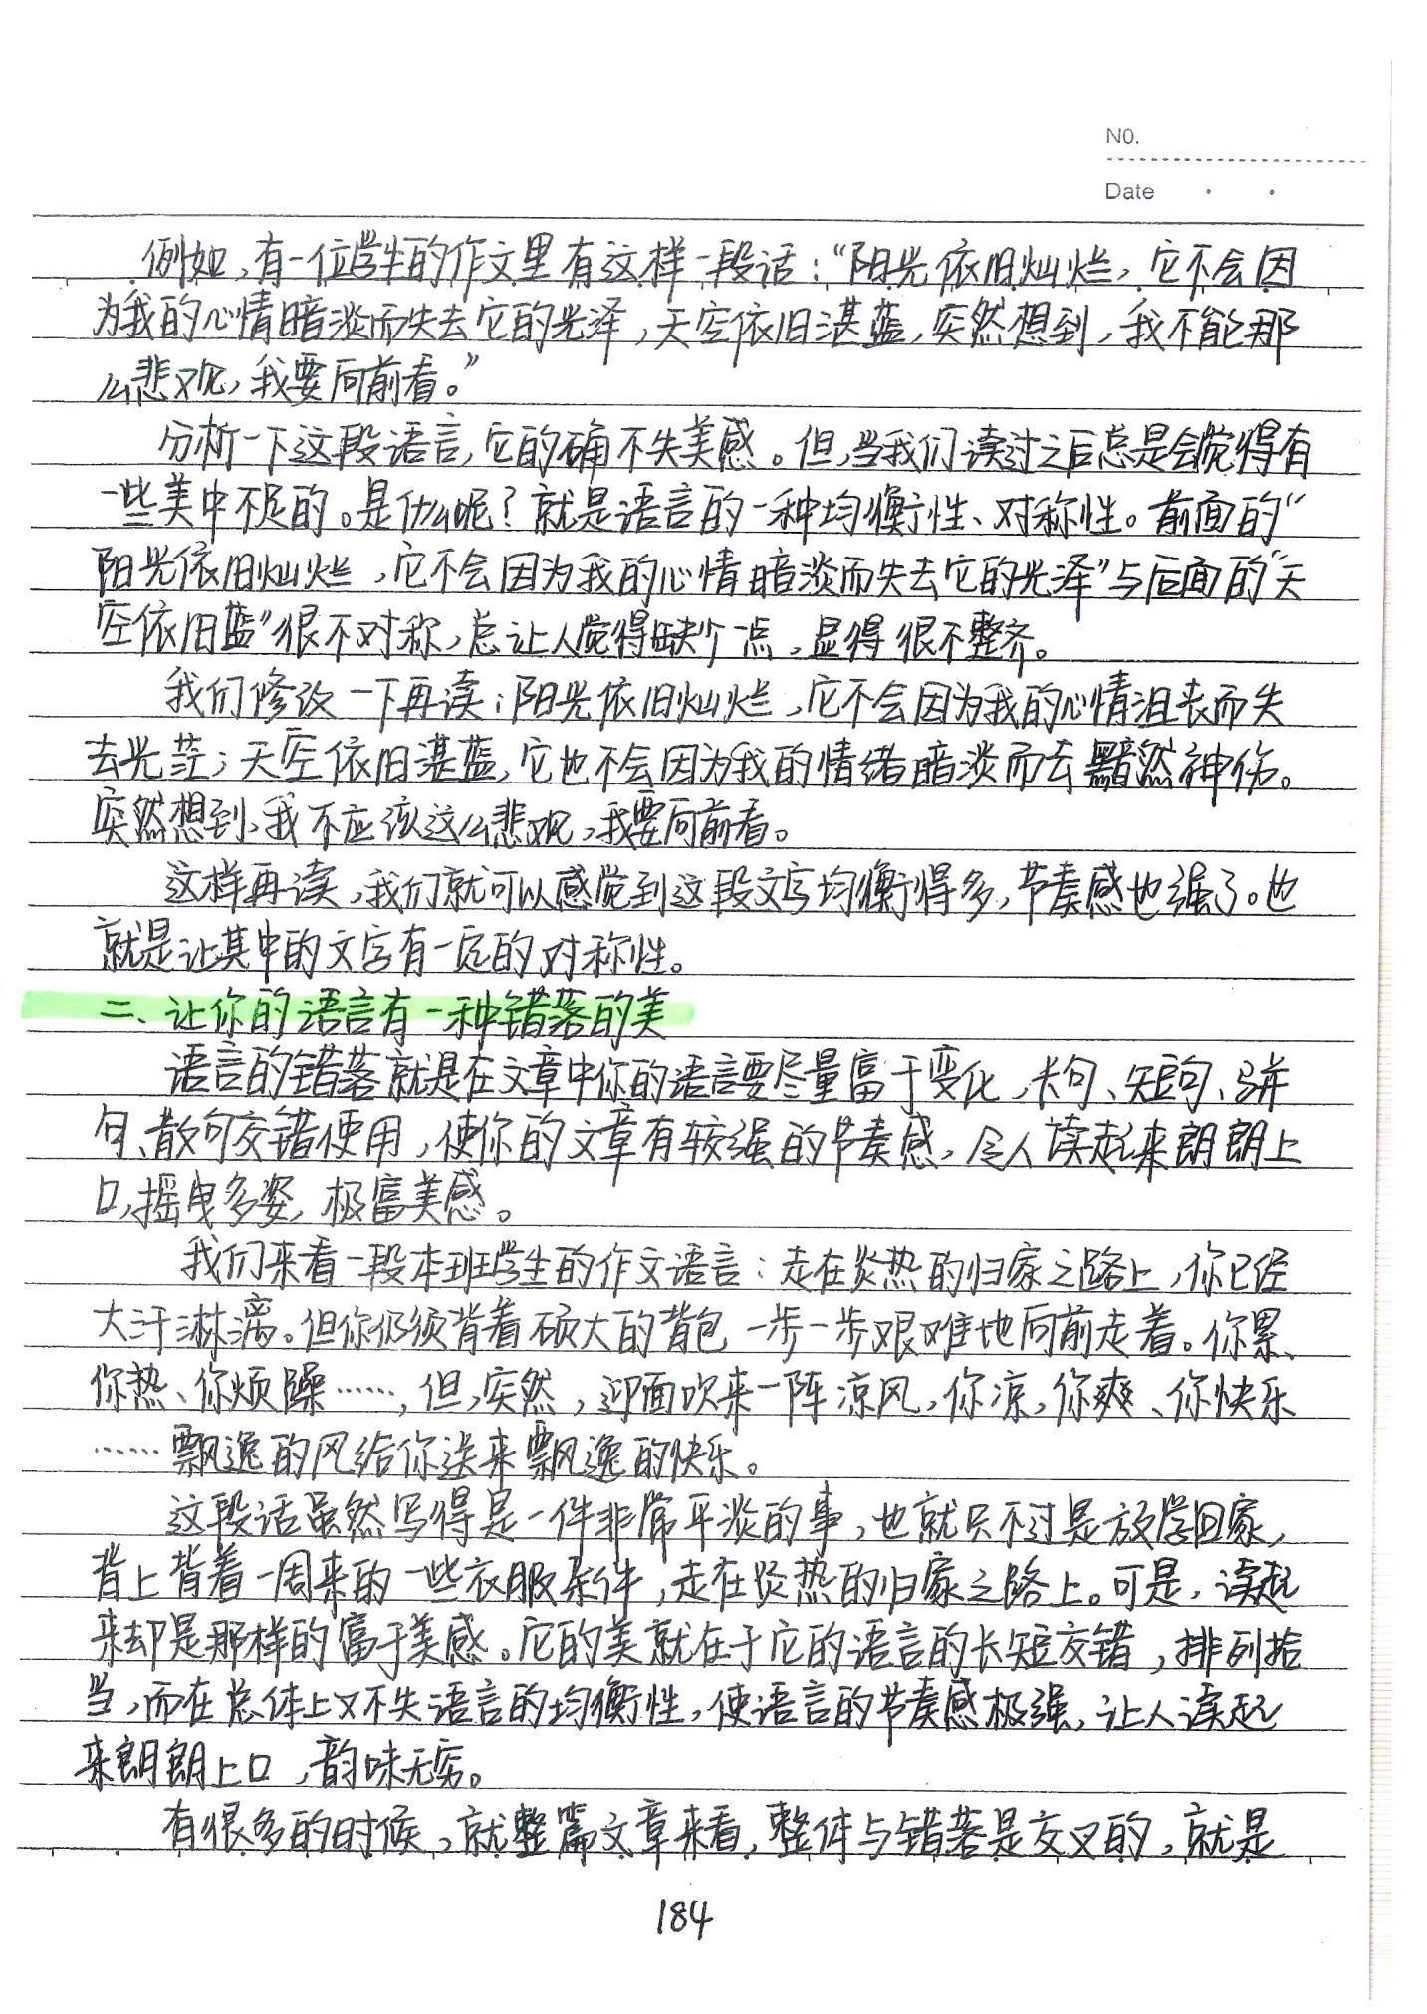 NO.
Date
例如,有一位学生的作文里有这样一段话:“阳光依旧灿烂,它不会因
为我的心情暗淡而失去它的光泽,天空依旧湛蓝,突然想到,我不能那
么悲观,我要向前看。”
分析一下这段语言,它的确不失美感。但,当我们读过之后总是会觉得有
一些美中不足的。是什么呢?就是语言的一种均衡性、对称性。前面的“
阳光依旧灿烂,它不会因为我的心情暗淡而失去它的光泽”与后面的“天
空依旧蓝”很不对称,总让人觉得缺少点,显得很不整齐。
我们修改一下再读:阳光依旧灿烂,它不会因为我的心情沮丧而失
去光芒;天空依旧湛蓝,它也不会因为我的情绪暗淡而去黯然神伤。
突然想到,我不应该这么悲观,我要向前看。
这样再读,我们就可以感觉到这段文字均衡得多,节奏感也强了。也
就是让其中的文字有一定的对称性。
二、让你的语言有一种错落的美
语言的错落就是在文章中你的语言要尽量富于变化,长句、短句、骈
句、散句交错使用,使你的文章有较强的节奏感,令人读起来朗朗上
口,摇曳多姿,极富美感。
我们来看一段本班学生的作文语言:走在炎热的归家之路上,你已经
大汗淋漓。但你仍须背着硕大的背包一步一步艰难地向前走着。你累、
你热、你烦躁……,但,突然,迎面吹来一阵凉风,你凉,你爽、你快乐
……飘逸的风给你送来飘逸的快乐。
这段话虽然写得是一件非常平淡的事,也就只不过是放学回家,
背上背着一周来的一些衣服杂件,走在炎热的归家之路上。可是,读起
来却是那样的富于美感。它的美就在于它的语言的长短交错,排列恰
当,而在总体上又不失语言的均衡性,使语言的节奏感极强,让人读起
来朗朗上口,韵味无穷。
有很多的时候,就整篇文章来看,整体与错落是交叉的,就是
184